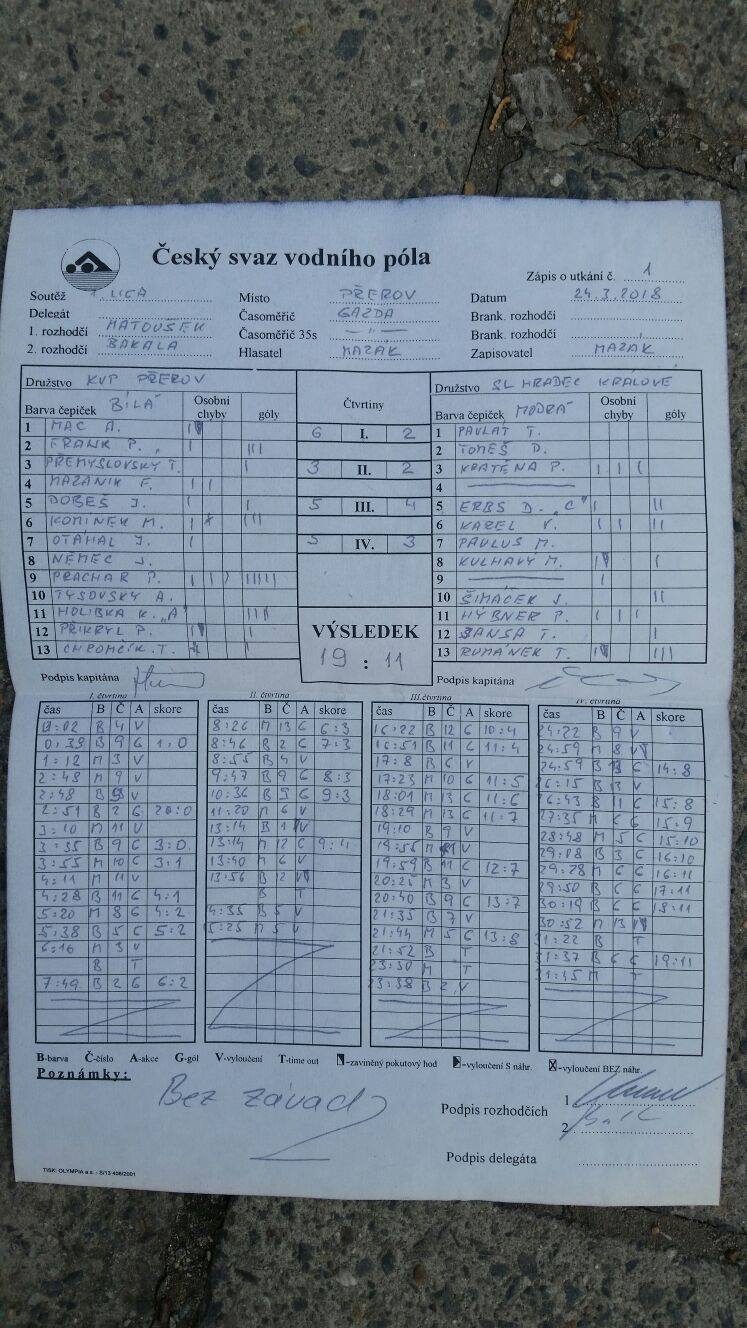 Český svaz vodního póla
Zápis o utkání č. 1
Soutěž 1. LIGA Místo PŘEROV Datum 24.3.2018
Delegát Časoměřič GAZDA Brank. rozhodčí
1. rozhodčí MATOUŠEK Časoměřič 35s — " — Brank. rozhodčí
2. rozhodčí BAKALA Hlasatel MAZÁK Zapisovatel MAZÁK
Družstvo KVP PŘEROV
Barva čepiček BÍLÁ Osobní chyby góly
1 MAC A.
2 FRANK P. III
3 PŘEMYSLOVSKÝ T. I
4 MAZANIK F.
5 DOBEŠ J. I
6 KOMINEK M. III
7 OTÁHAL J.
8 NĚMEC J.
9 PRACHAR P. IIIII
10 TYSOVSKÝ A.
11 HOLIBKA K. "A" III
12 PŘIKRYL P. I
13 CHROMČÍK T. I
Podpis kapitána
Čtvrtiny
6 I. 2
3 II. 2
5 III. 4
5 IV. 3
VÝSLEDEK
19 : 11
Družstvo SL HRADEC KRÁLOVÉ
Barva čepiček MODRÁ Osobní chyby góly
1 PAVLAT T.
2 TOMEŠ D.
3 KRATĚNA P. I I I
4
5 ERBS D. "C" I II
6 KAREL V. I I II
7 PAVLUS M.
8 KULHAVÝ M. I
9
10 ŠIMÁČEK J. II
11 HÝBNER P. I I I
12 JANSA T. I
13 RUMÁNEK T. III
Podpis kapitána
I. čtvrtina
čas B Č A skore
0:02 B 4 V
0:39 B 9 G 1:0
1:12 M 3 V
2:48 M 9 V
2:48 B 9 V
2:51 B 2 G 2:0
3:10 M 11 V
3:35 B 9 G 3:0
3:55 M 10 G 3:1
4:11 M 11 V
4:28 B 11 G 4:1
5:20 M 8 G 4:2
5:38 B 5 G 5:2
6:16 M 3 V
B T
7:49 B 2 G 6:2
II. čtvrtina
čas B Č A skore
8:26 M 13 G 6:3
8:46 B 2 G 7:3
8:55 B 4 V
9:47 B 9 G 8:3
10:36 B 9 G 9:3
11:20 M 6 V
13:14 B 1 V
13:14 M 12 G 9:4
13:40 M 6 V
13:56 B 12 V
B T
14:35 B 5 V
15:25 M 5 V
III. čtvrtina
čas B Č A skore
16:22 B 12 G 10:4
16:51 B 11 G 11:4
17:8 B 6 V
17:23 M 10 G 11:5
18:01 M 13 G 11:6
18:29 M 13 G 11:7
19:10 B 9 V
19:56 M 11 V
19:59 B 11 G 12:7
20:25 M 3 V
20:40 B 9 G 13:7
21:35 B 7 V
21:44 M 5 G 13:8
21:52 B T
23:30 M T
23:38 B 2 V
IV. čtvrtina
čas B Č A skore
24:22 B 9 V
24:59 M 8 V
24:59 B 13 G 14:8
26:15 B 13 V
26:43 B 11 G 15:8
27:35 M 6 G 15:9
28:48 M 5 G 15:10
29:08 B 3 G 16:10
29:28 M 6 G 16:11
29:50 B 6 G 17:11
30:19 B 6 G 18:11
30:52 M 13 V
31:22 B T
31:37 B 6 G 19:11
31:45 M T
B-barva Č-číslo A-akce G-gól V-vyloučení T-time out -zaviněný pokutový hod -vyloučení S náhr. -vyloučení BEZ náhr.
Poznámky:
Bez závad
Podpis rozhodčích 1
2
Podpis delegáta
TISK: OLYMPIA a.s. - S/13 406/2001